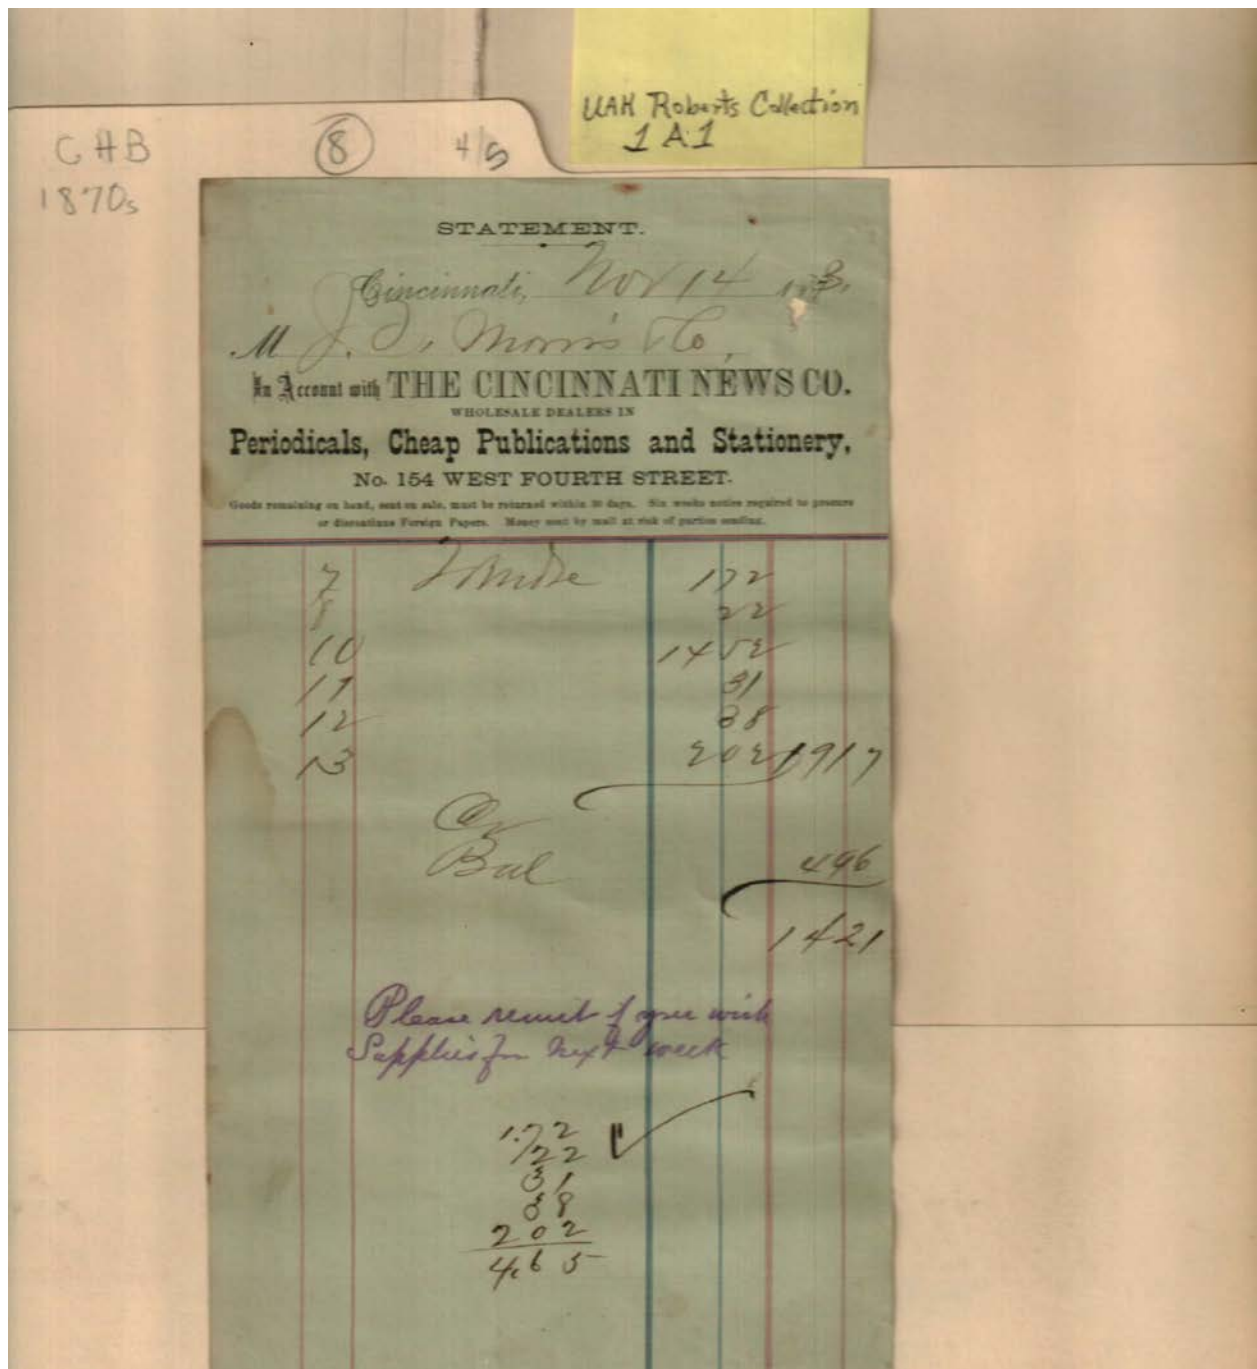 UAH Roberts Collection
1 A:1
CHB
8
4/5
1870s
STATEMENT.
Cincinnati, Nov 14 1873.
M J. Morris & Co,
In Account with THE CINCINNATI NEWS CO.
WHOLESALE DEALERS IN
Periodicals, Cheap Publications and Stationery,
No. 154 WEST FOURTH STREET.
Goods remaining on hand, sent on sale, must be returned within 30 days. Six weeks notice required to procure
or discontinue Foreign Papers. Money sent by mail at risk of parties sending.
7 Mdse 172
8 22
10 1452
11 31
12 38
13 202 1917
Cr
496
Bal
1421
Please remit if you wish
Supplies for next week
1.72
22
31
38
202
4.65